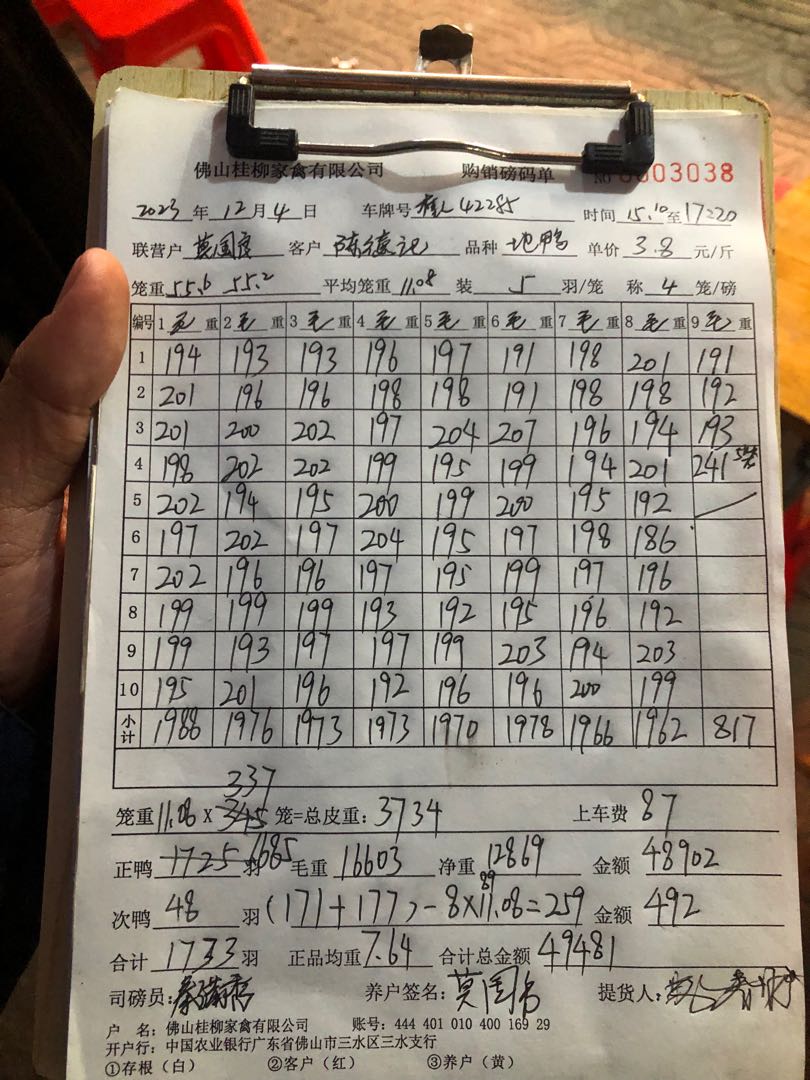 佛山桂柳家禽有限公司 购销磅码单 NO 0003038
2023 年 12 月 4 日 车牌号 桂L42285 时间 15.10 至 17:20
联营户 莫国富 客户 陈德记 品种 地鸭 单价 3.8 元/斤
笼重 55.6 55.2 平均笼重 11.08 装 5 羽/笼 称 4 笼/磅
编号 1 毛 重 2 毛 重 3 毛 重 4 毛 重 5 毛 重 6 毛 重 7 毛 重 8 毛 重 9 毛 重
1 194 193 193 196 197 191 198 201 191
2 201 196 196 198 198 191 198 198 192
3 201 200 202 197 204 207 196 194 193
4 198 202 202 199 195 199 194 201 241 5笼
5 202 194 195 200 199 200 195 192
6 197 202 197 204 195 197 198 186
7 202 196 196 197 195 199 197 196
8 199 199 199 193 192 195 196 192
9 199 193 197 197 199 203 194 203
10 195 201 196 192 196 196 200 199
小计 1988 1976 1973 1973 1970 1978 1966 1962 817
337
笼重 11.08 X 345 笼=总皮重: 3734 上车费 87
正鸭 1725 1685 羽 毛重 16603 净重 12869 金额 48902
89
次鸭 48 羽 (171+177)-8×11.08=259 金额 492
合计 1733 羽 正品均重 7.64 合计总金额 49481
司磅员: 养户签名: 莫国 提货人:
户 名: 佛山桂柳家禽有限公司 账号: 444 401 010 400 169 29
开户行: 中国农业银行广东省佛山市三水区三水支行
①存根(白) ②客户(红) ③养户(黄)